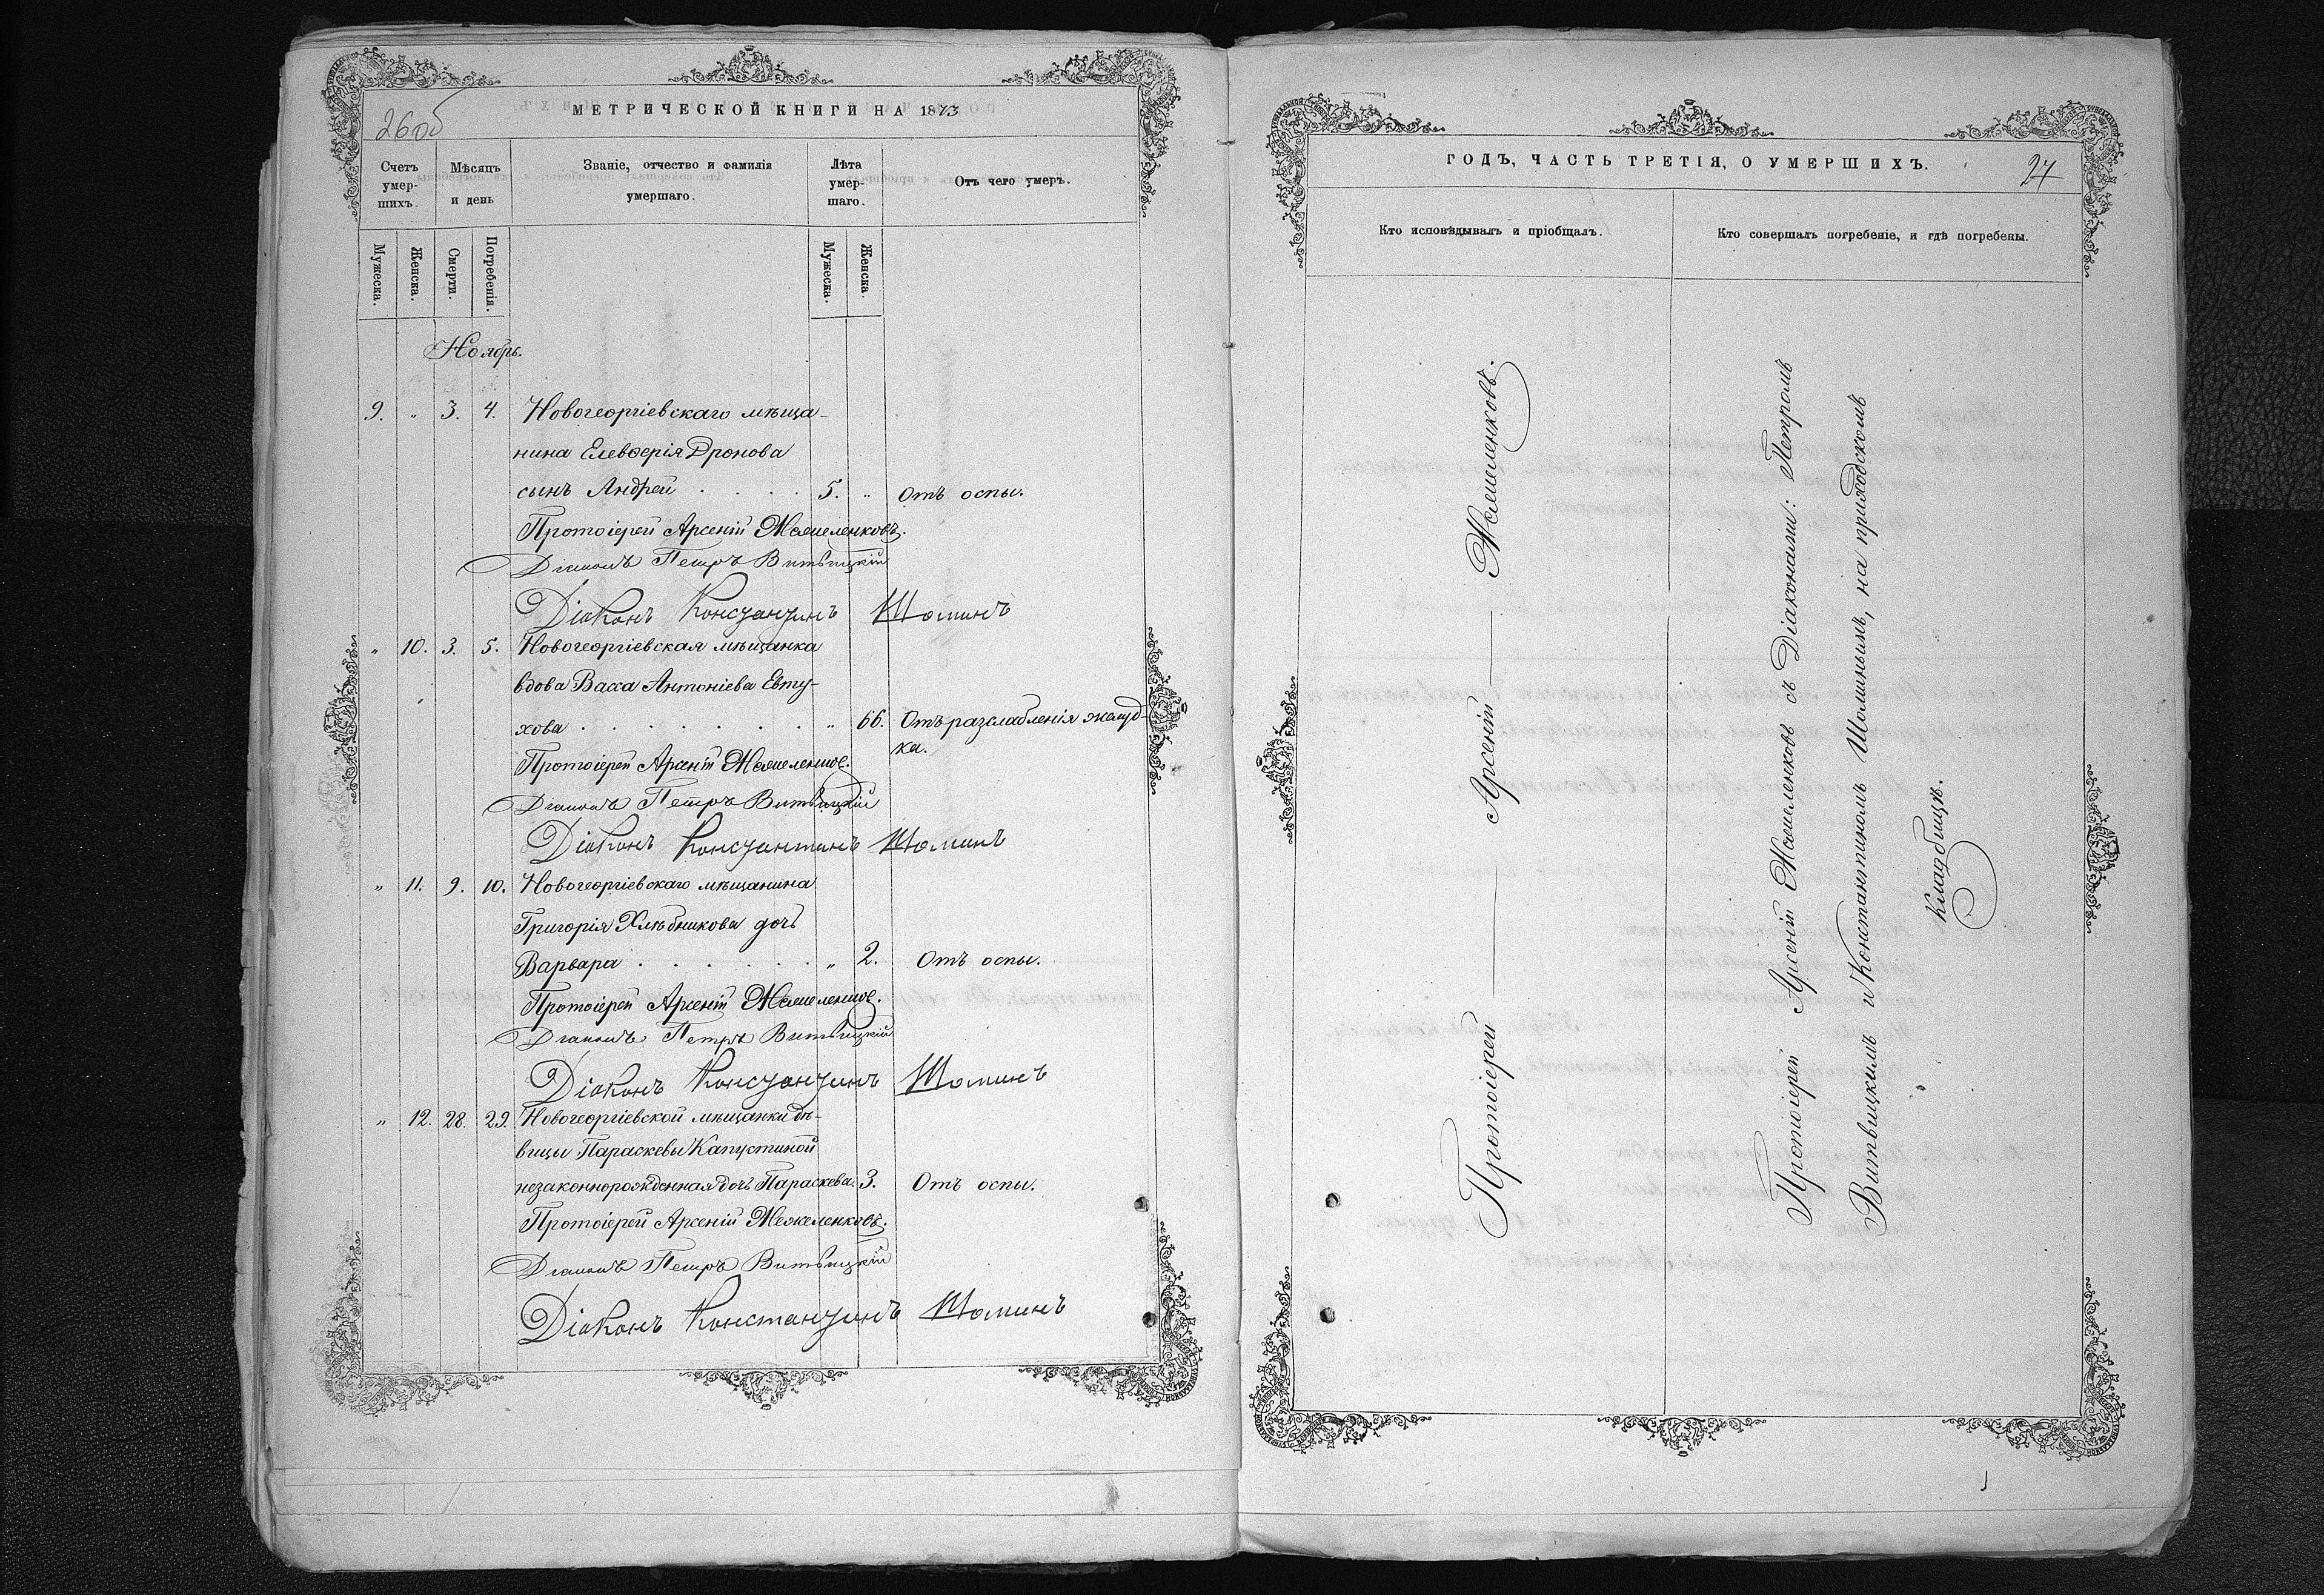 26об
МЕТРИЧЕСКОЙ КНИГИ НА 1873
Счетъ умер-шихъ.
Мѣсяцъ и день
Званіе, отчество и фамилія умершаго.
Лѣта умер-шаго.
Отъ чего умеръ.
Мужеска.
Женска.
Смерти.
Погребенія.
Мужеска.
Женска.
Ноябрь.
9. " 3. 4. Новогеоргіевскаго мѣща-
нина Елевѳерія Дронова
сынъ Андрей . . . . 5. " Отъ оспы.
Протоіерей Арсеній Жежеленковъ.
Діаконъ Петръ Витвицкій
Діаконъ Константинъ Шоминъ
" 10. 3. 5. Новогеоргіевская мѣщанка
вдова Васса Антоніева Евту-
хова . . . . . . . " 66. Отъ разслабленія желуд-
ка.
Протоіерей Арсеній Жежеленковъ.
Діаконъ Петръ Витвицкій
Діаконъ Константинъ Шоминъ
" 11. 9. 10. Новогеоргіевскаго мѣщанина
Григорія Хлѣбникова дочь
Варвара . . . . . . " 2. Отъ оспы.
Протоіерей Арсеній Жежеленковъ.
Діаконъ Петръ Витвицкій
Діаконъ Константинъ Шоминъ
" 12. 28. 29. Новогеоргіевской мѣщанки дѣ-
вицы Параскевы Капустиной
незаконнорожденная дочь Параскева. 3. Отъ оспы.
Протоіерей Арсеній Жежеленковъ.
Діаконъ Петръ Витвицкій
Діаконъ Константинъ Шоминъ
ГОДЪ, ЧАСТЬ ТРЕТІЯ, О УМЕРШИХЪ.
27
Кто исповѣдывалъ и пріобщалъ.
Кто совершалъ погребеніе, и гдѣ погребены.
Протоіерей — Арсеній — Жежеленковъ.
Протоіерей Арсеній Жежеленковъ съ Діаконами: Петромъ
Витвицкимъ и Константиномъ Шоминымъ, на приходскомъ
кладбищѣ.